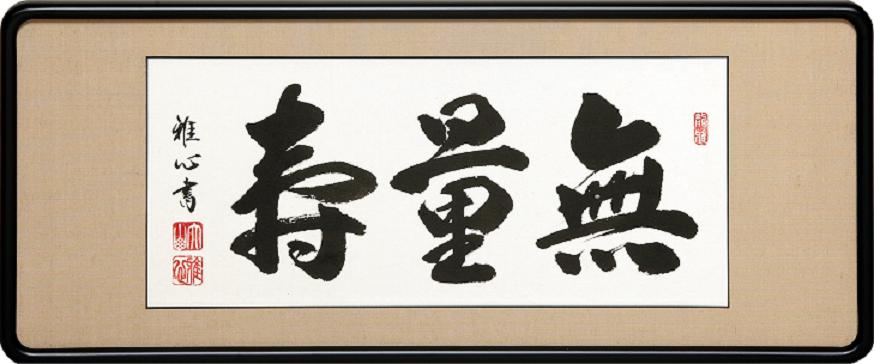 無量寿
雅心書